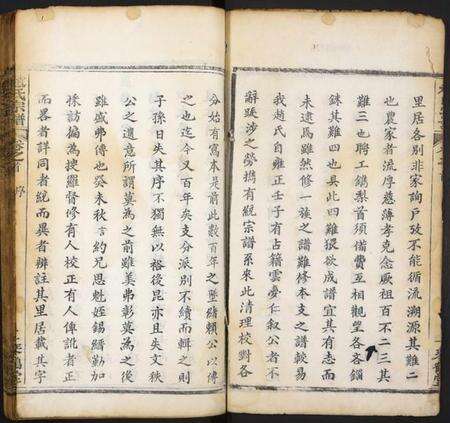 里居各別非家詢戶攷不能循流溯源其難二
也農家者流厚慈薄孝克念厥祖百不二三其
難三也聘工鐫棃首須備費互相觀望各吝錙
銖其難四也具此四難猥欲成譜宜其有志而
未逮焉雖然修一族之譜難修本支之譜較易
我趙氏自雍正壬子有占籍雲夢仁叙公者不
辭跋涉之勞攜有統宗譜系來此清理校對各
分始有寫本是前此數百年之墜緒賴公以傳
之也迄今又百年矣支分派別不續而輯之則
子孫日失其序不獨無以裕後昆亦且失文秩
公之遺意所謂莫為之前雖美弗彰莫為之後
雖盛弗傳也癸未秋言約兄恩魁姪錫縉勤加
採訪徧為搜羅督修有人校正有人俾訛者正
而畧者詳同者統而異者辨註其里居載其字
氏宗譜
卷之首
序